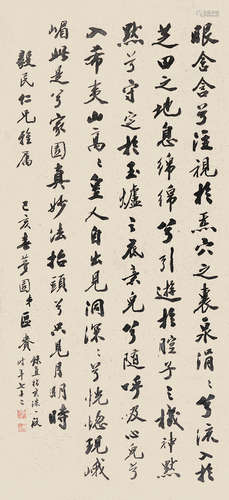 眼含含兮注視於炁穴之裏泉涓〻兮流入於
芝田之地息綿綿兮引遊於腔子之機神默
默兮守定於玉爐之底來兮隨呼吸心兒兮
入希夷山高〻皇人自出見洞深〻兮恍惚現峨
嵋此是兮家園真妙法抬頭兮只見月明時
毅民仁兄雅属
己亥春夢園區賚
時年七十二